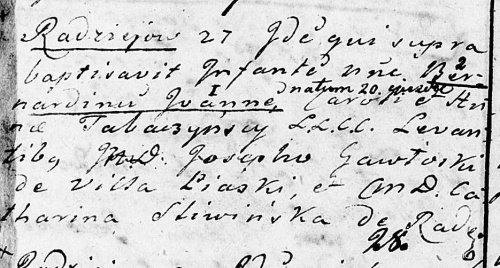 Radziejów 27 Idē qui supra
baptisavit Infantē nōē Ber-
nardinū Joannē natum 20 Caroli et An-
næ Tabaczyńscy LL.CC. Levan-
tibq M.D. Josepho Gawłoski
de Villa Piaski, et M.D. Ca-
tharina Sliwińska de Radz
28.